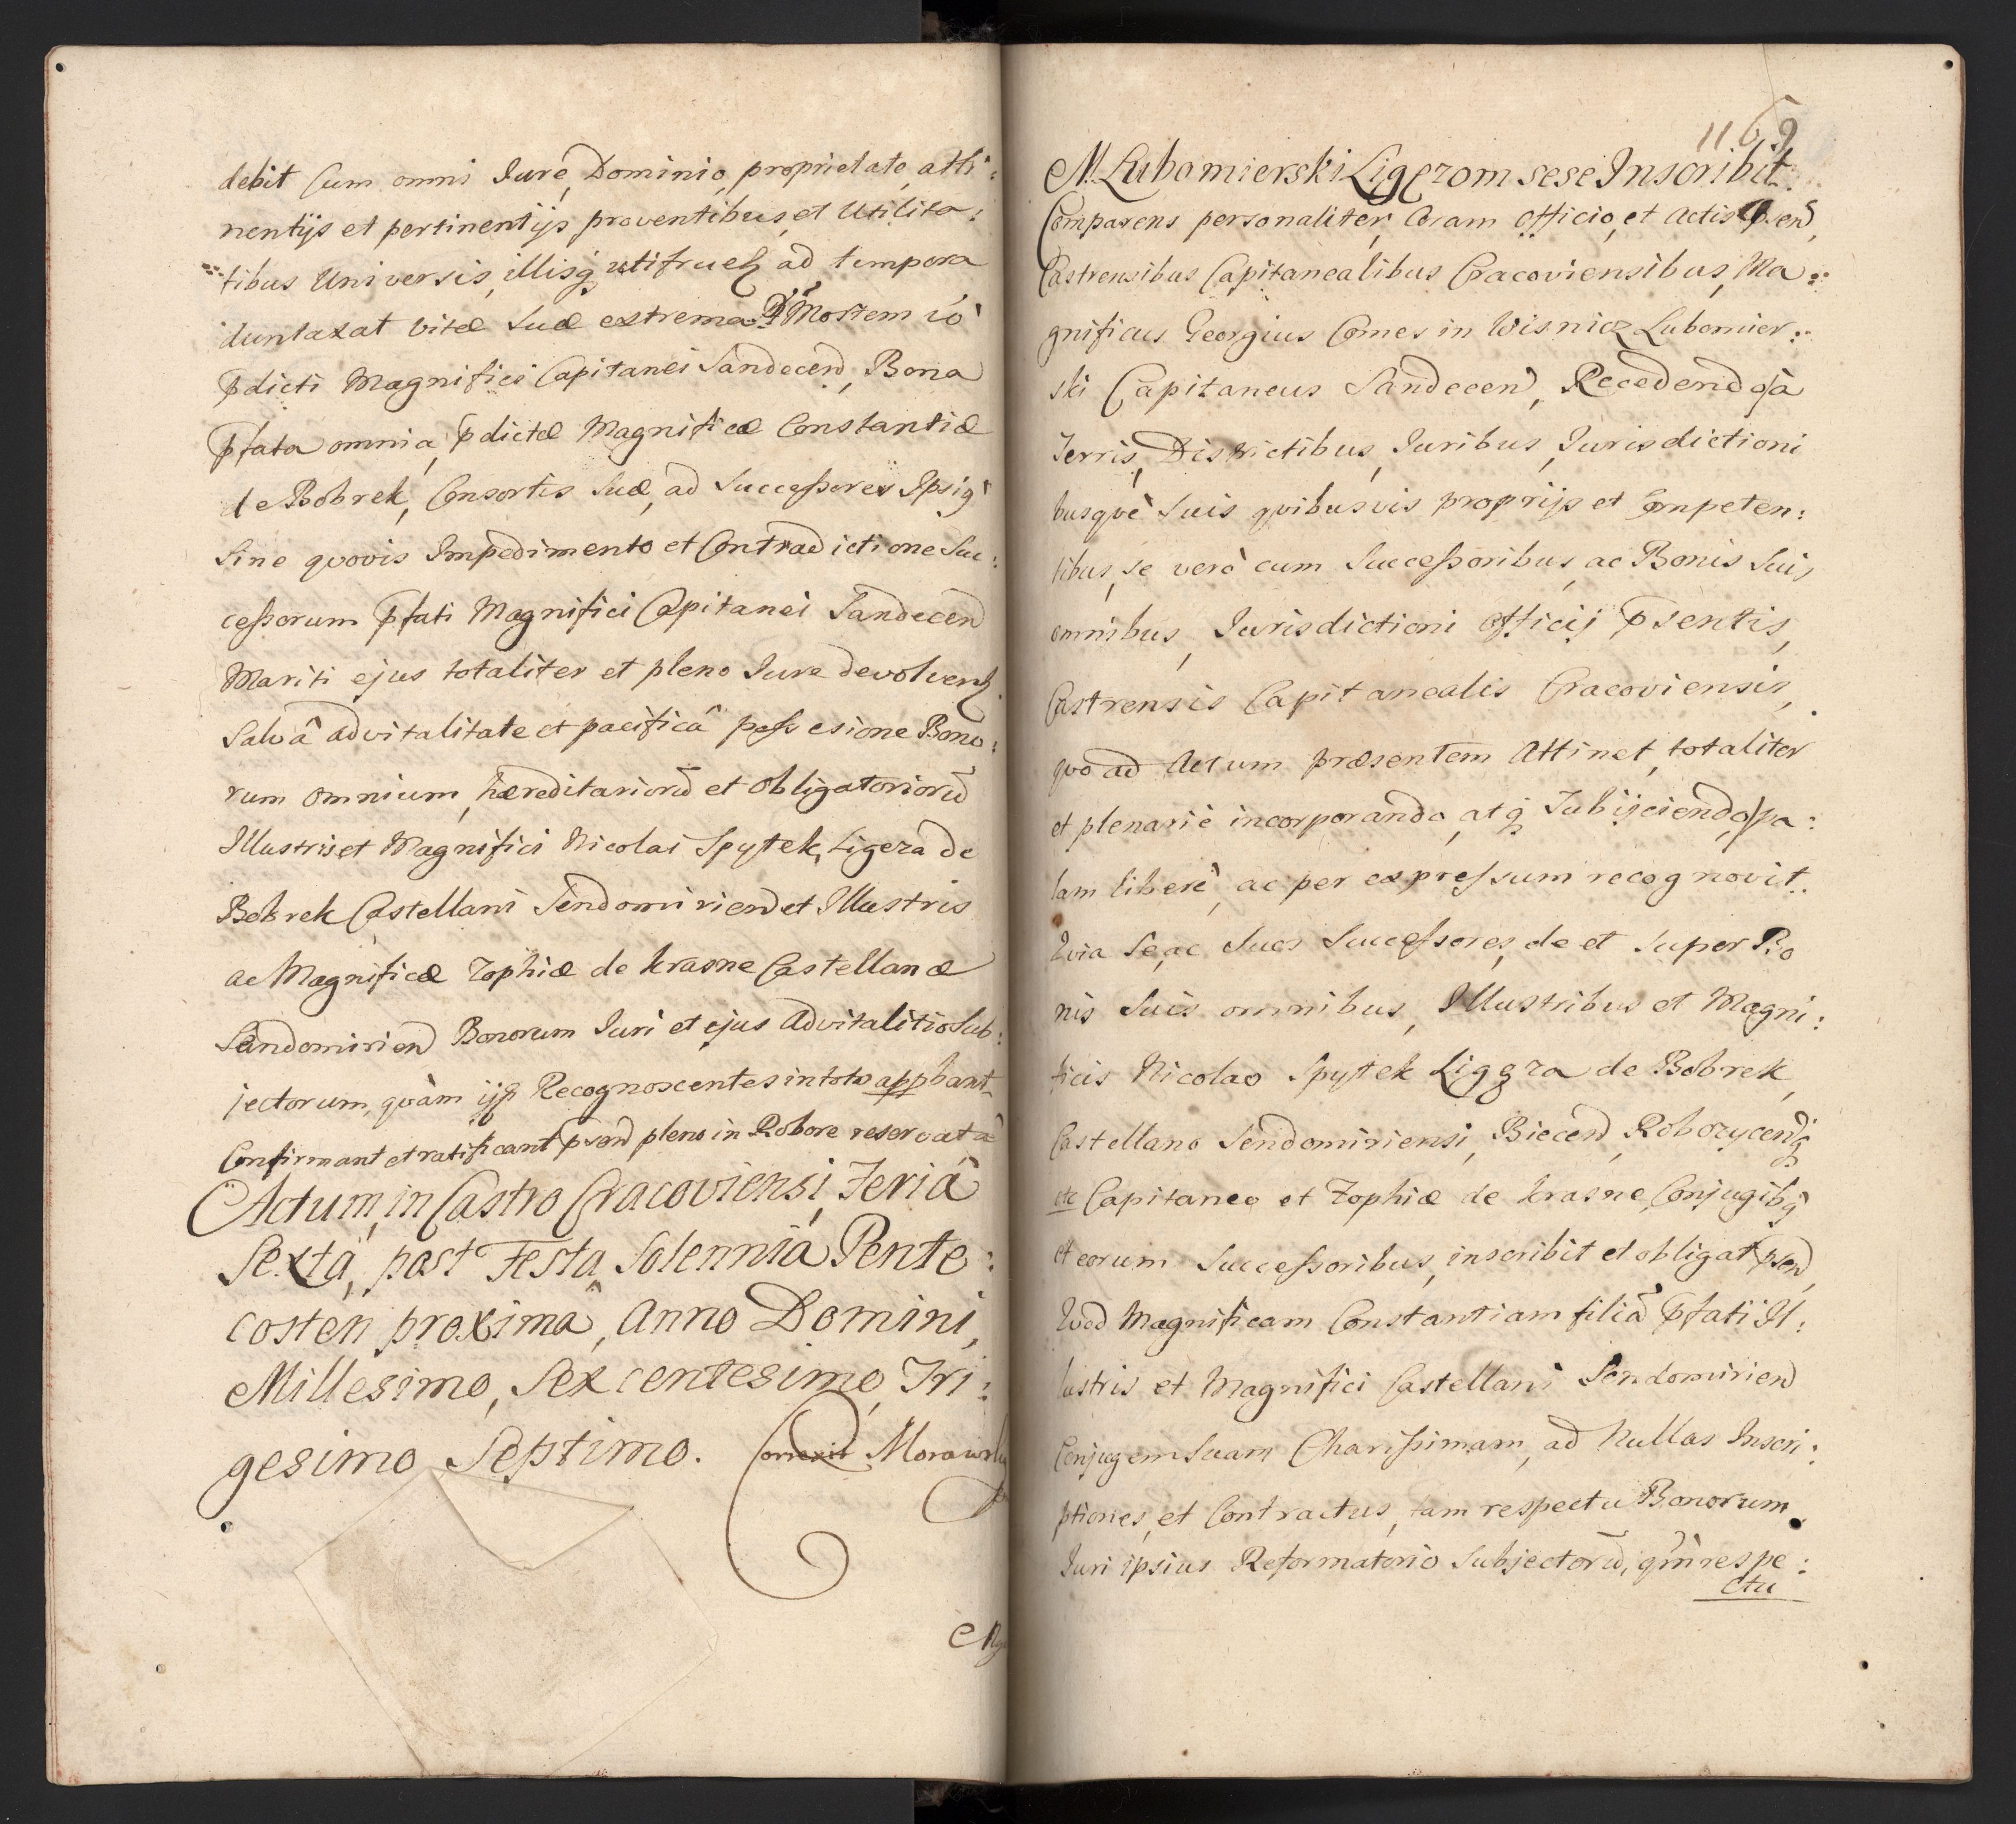 debit Cum omni Jure, Dominio, proprietate, atti:
nentijs et pertinentijs proventibus, et Utilita:
tibus Universis, illisq utifrueħ ad tempora
duntaxat Vitæ Suæ extrema. Mortem
pdicti Magnifici Capitanei Sandecen, Bona
pfata omnia, pdictæ Magnificæ Constantiæ
de Bobrek, Consortis Suæ, ad Successores Ipsiq
Sine qvovis Impedimento et Contradictione Suc:
cessorum pfati Magnifici Capitanei Sandecen
Mariti ejus totaliter et pleno Jure devolvenł.
Salvâ advitalitate et pacificâ possesione Bono:
rum omnium, hæreditariorū et obligatoriorū
Illustris et Magnifici Nicolai Spytek, Ligeza de
Bobrek Castellani Sendomirien et Illustris
ac Magnificæ Zophiæ de krasne Castellanæ
Sendomirien Bonorum Juri et ejus Advitalitio Sub:
jectorum, qvàm ijs Recognoscentes in toto appbant
Confirmant et ratificant psen pleno in Robore reservatâ
Actum, in Castro Cracoviensi, Feriâ
Sextâ, post Festa Solennia Pente:
costen proximâ, Anno Domini,
Millesimo, Sex centesimo, Tri:
gesimo Septimo. Correxit Morawsky
1169
M. Lubomierski Ligęzom sese Inscribit.
Comparens personaliter, Coram Officio, et Actis psen,
Castrensibus Capitanealibus Cracoviensibus, Ma:
gnificus Georgius Comes in Wisnicz Lubomier:
ski Capitaneus Sandecen, Recedendo à
Terris, Districtibus, Juribus, Jurisdictioni
busqvè Suis qvibusvis proprijs et Competen:
tibus, se verò cum Successoribus, ac Bonis Suis,
omnibus, Jurisdictioni Officij psentis,
Castrensis Capitanealis Cracoviensis,
qvo ad Actum præsentem Attinet, totaliter
et plenariè incorporando, atq Subijciendo, pa:
lam liberè, ac per expressum recognovit.
Qvia Se, ac Suos Successores, de et super Bo
nis Suis omnibus, Illustribus et Magni:
ficis Nicolao Spytek Ligęza de Bobrek,
Castellano Sendomiriensi, Biecen, Roborycenq
etc Capitaneo et Zophiæ de krasne, Conjugibq
et eorum Successoribus, inscribit et obligat psen,
Qvod Magnificam Constantiam filiā pfati Il:
lustris et Magnifici Castellani Sendomirien
Conjugem Suam Charissimam, ad Nullas Inscri:
ptiones, et Contractus, tam respectu Bonorum,
Juri ipsius Reformatorio Subjectorū, qm respe:
ctu